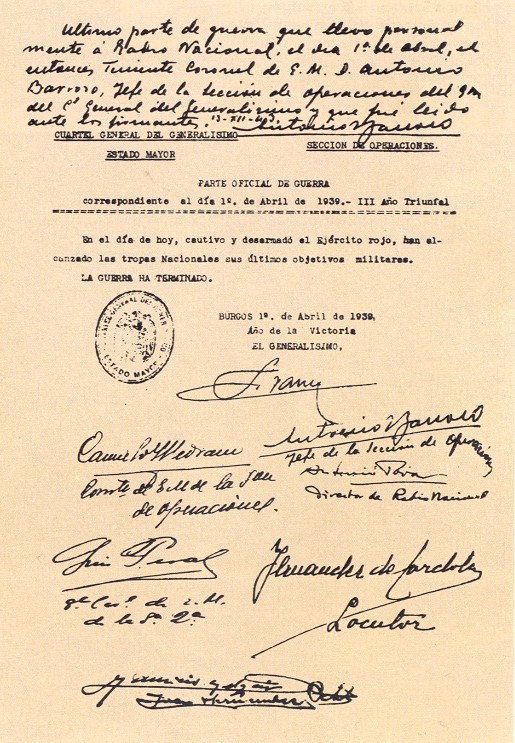 Ultimo parte de guerra que llevo personal
mente á Radio Nacional, el día 1º de Abril, el
entonces Teniente Coronel de E. M. D. Antonio
Barroso, Jefe de la Sección de operaciones del
del Cl General del Generalísimo y que fué leido
ante los firmantes. 13-XII-43 Antonio Barroso
CUARTEL GENERAL DEL GENERALISIMO
SECCION DE OPERACIONES.
ESTADO MAYOR
PARTE OFICIAL DE GUERRA
correspondiente al día 1º. de Abril de 1939.- III Año Triunfal
En el día de hoy, cautivo y desarmado el Ejército rojo, han al-
canzado las tropas Nacionales sus últimos objetivos militares.
LA GUERRA HA TERMINADO.
BURGOS 1º. de Abril de 1939,
Año de la Victoria
EL GENERALISIMO,
ESTADO MAYOR
Franco
Antonio Barroso
Jefe de la Sección de Operaciones
Antonio
Director de Radio Nacional
Carmelo Medrano
Comte de E M de la Son
de operaciones.
Luis
de E. M.
de la Sº 2ª
Fernandez de Cordoba
Locutor
Juan Hernández